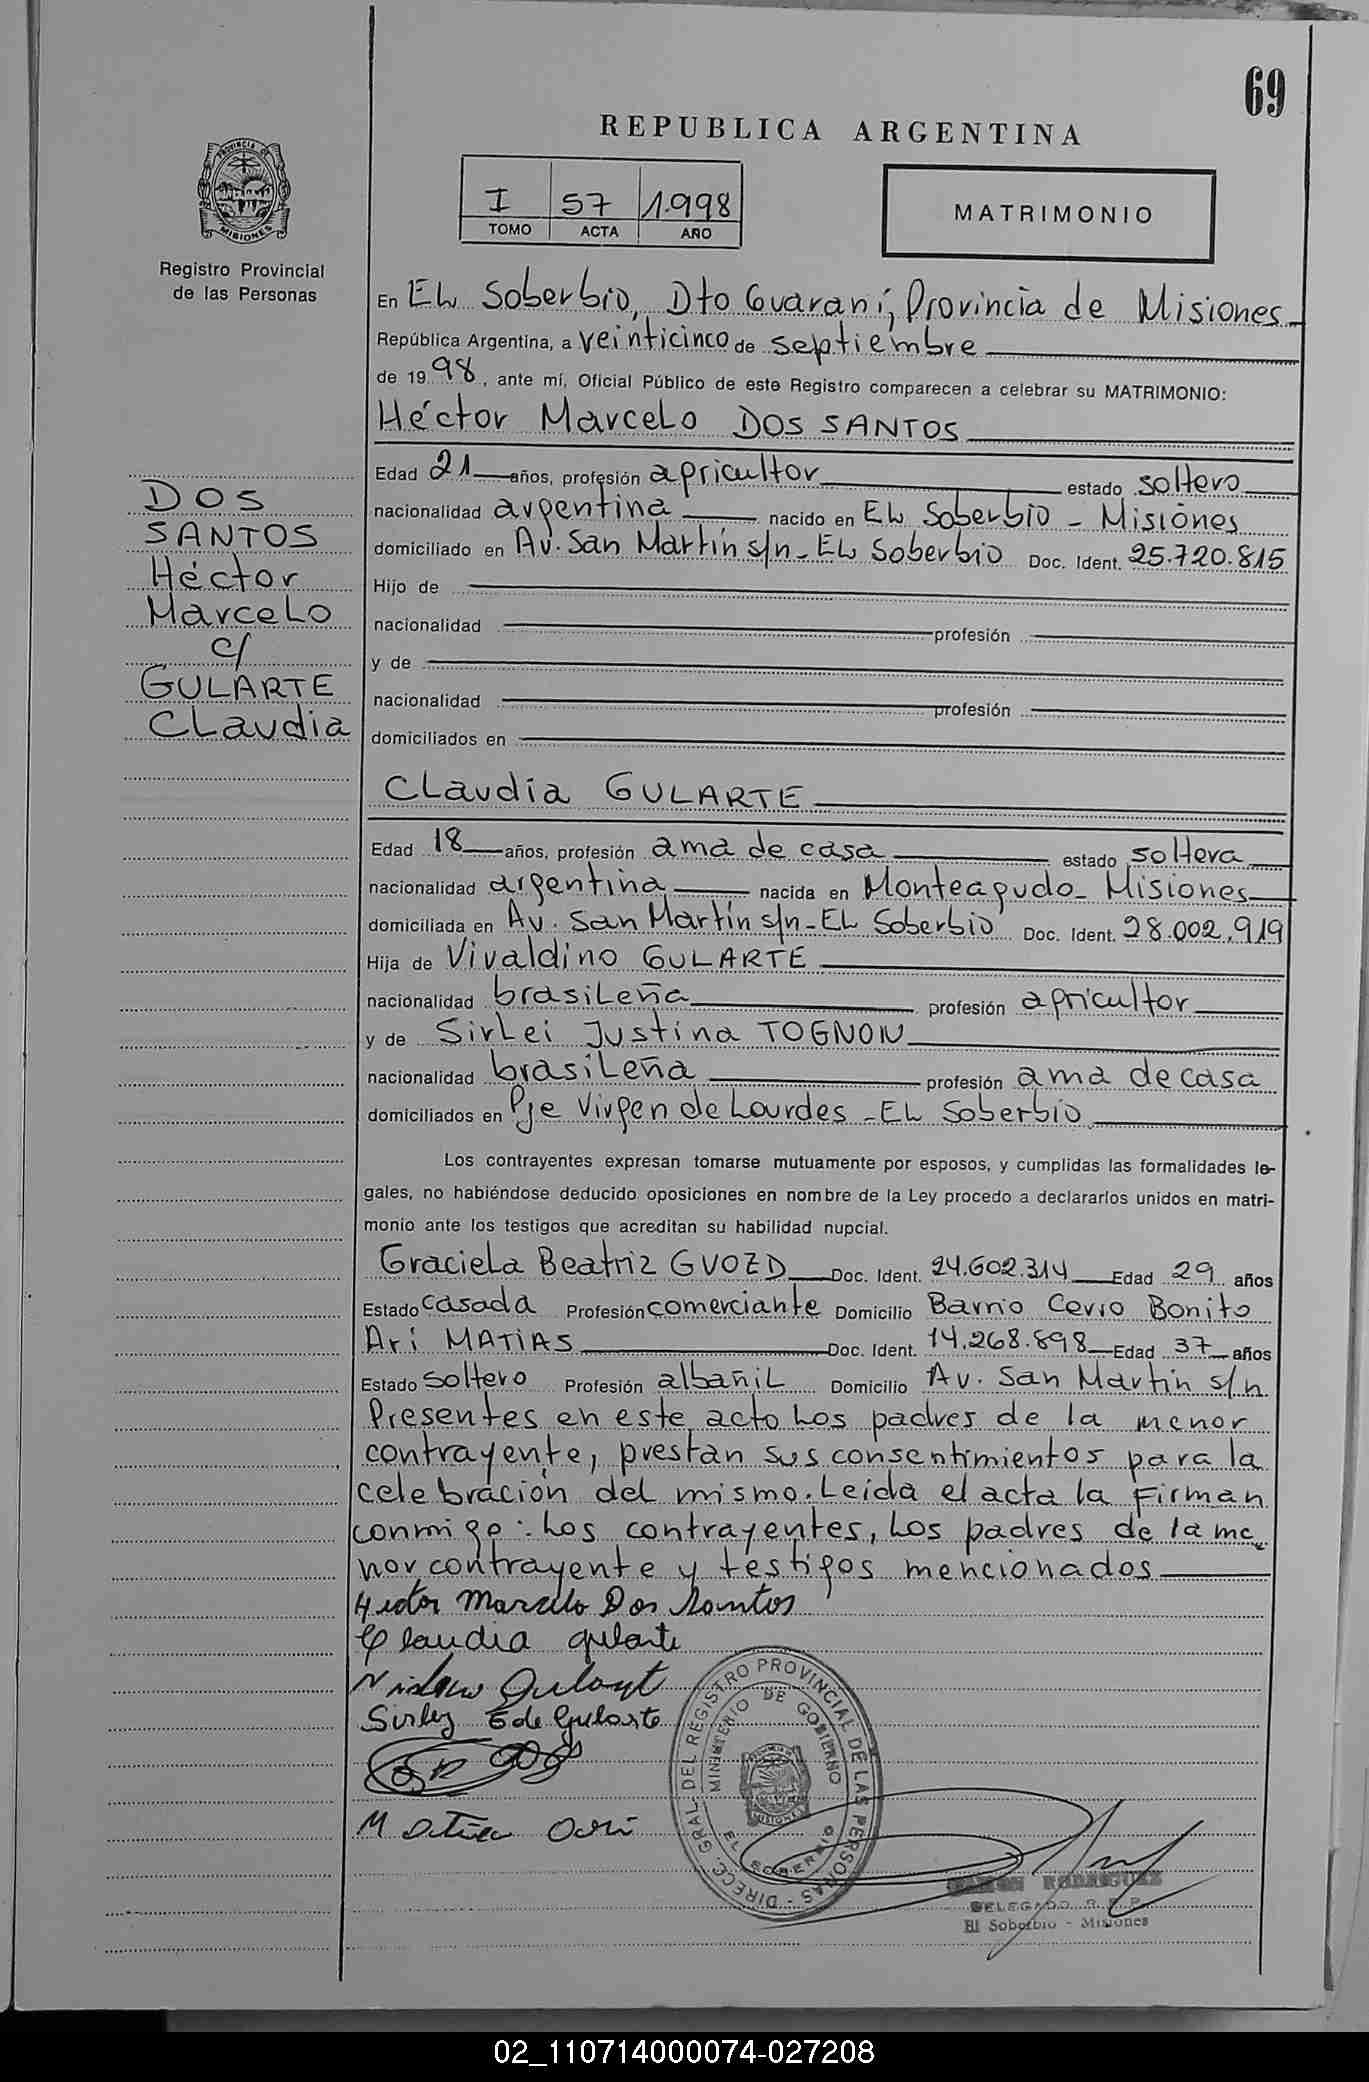 69
REPUBLICA ARGENTINA
I 57 1.998
TOMO ACTA AÑO
MATRIMONIO
PROVINCIA DE
MISIONES
Registro Provincial
de las Personas
En EL Soberbio, Dto Guaraní, Provincia de Misiones
República Argentina, a veinticinco de septiembre
de 1998, ante mí, Oficial Público de este Registro comparecen a celebrar su MATRIMONIO:
Héctor Marcelo DOS SANTOS
Edad 21 años, profesión agricultor estado soltero
nacionalidad argentina nacido en EL Soberbio - Misiones
domiciliado en Av. San Martín s/n - EL Soberbio Doc. Ident. 25.720.815
Hijo de
nacionalidad profesión
y de
nacionalidad profesión
domiciliados en
DOS
SANTOS
Héctor
Marcelo
c/
GULARTE
Claudia
Claudia GULARTE
Edad 18 años, profesión ama de casa estado soltera
nacionalidad argentina nacida en Monteagudo - Misiones
domiciliada en Av. San Martín s/n - EL Soberbio Doc. Ident. 28.002.919
Hija de Vivaldino GULARTE
nacionalidad brasileña profesión agricultor
y de Sirlei Justina TOGNON
nacionalidad brasileña profesión ama de casa
domiciliados en Pje Virgen de Lourdes - EL Soberbio
Los contrayentes expresan tomarse mutuamente por esposos, y cumplidas las formalidades le-
gales, no habiéndose deducido oposiciones en nombre de la Ley procedo a declararlos unidos en matri-
monio ante los testigos que acreditan su habilidad nupcial.
Graciela Beatriz GVOZD Doc. Ident. 24.602.314 Edad 29 años
Estado casada Profesión comerciante Domicilio Barrio Cerro Bonito
Ari MATIAS Doc. Ident. 14.268.898 Edad 37 años
Estado soltero Profesión albañil Domicilio Av. San Martín s/n
Presentes en este acto los padres de la menor
contrayente, prestan sus consentimientos para la
celebración del mismo. Leída el acta la firman
conmigo: los contrayentes, los padres de la me
nor contrayente y testigos mencionados
Hector Marcelo Dos Santos
Claudia gularte
Gulart
Sirley de Gularte
Matias Ari
DIRECC. GRAL. DEL REGISTRO PROVINCIAL DE LAS PERSONAS
MINISTERIO DE GOBIERNO
EL SOBERBIO
RAMON RODRIGUEZ
DELEGADO R. P. P.
El Soberbio - Misiones
02_110714000074-027208